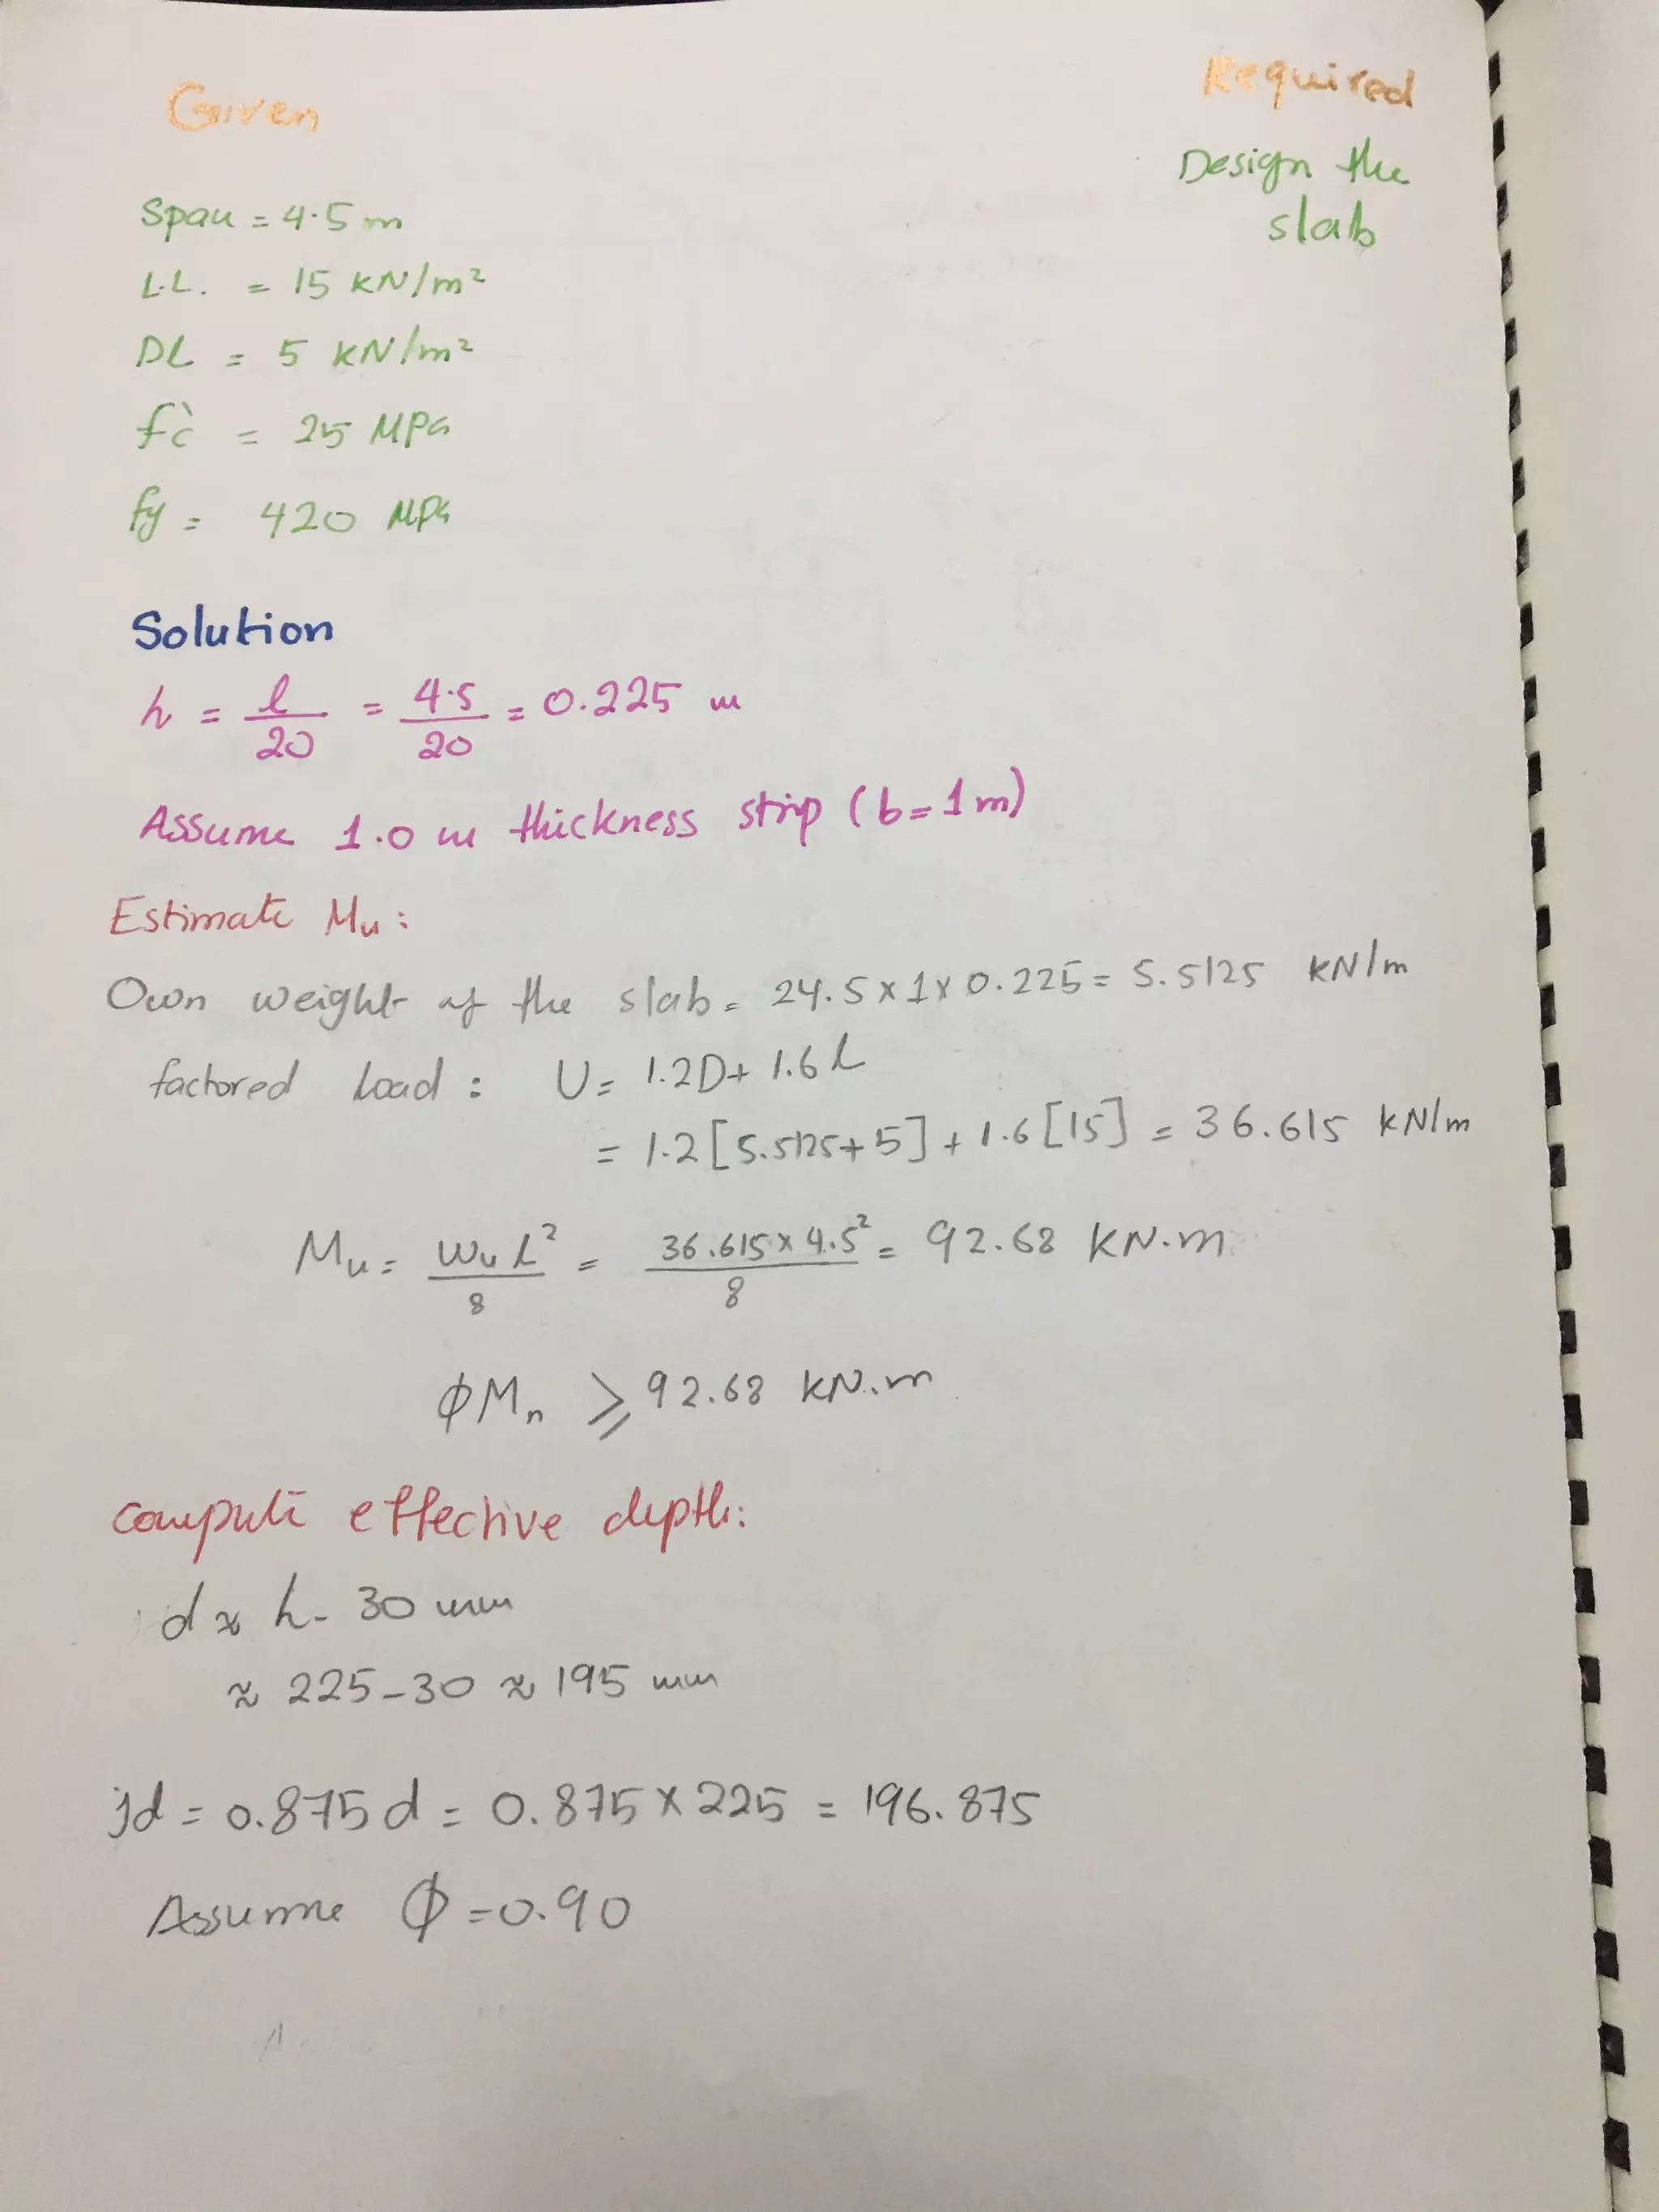 Given
Required
Design the
slab
Span = 4.5 m
L.L. = 15 KN/m²
DL = 5 KN/m²
fc' = 25 MPa
fy = 420 MPa
Solution
h = l/20 = 4.5/20 = 0.225 m
Assume 1.0 m thickness strip (b=1m)
Estimate Mu:
Own weight of the slab = 24.5 x 1 x 0.225 = 5.5125 KN/m
factored load : U = 1.2D + 1.6L
= 1.2 [5.5125+5] + 1.6 [15] = 36.615 KN/m
Mu = WuL²/8 = 36.615 x 4.5²/8 = 92.68 KN.m
ϕMn ≥ 92.68 KN.m
compute effective depth:
d ≈ h - 30 mm
≈ 225 - 30 ≈ 195 mm
jd = 0.875 d = 0.875 x 225 = 196.875
Assume ϕ = 0.90